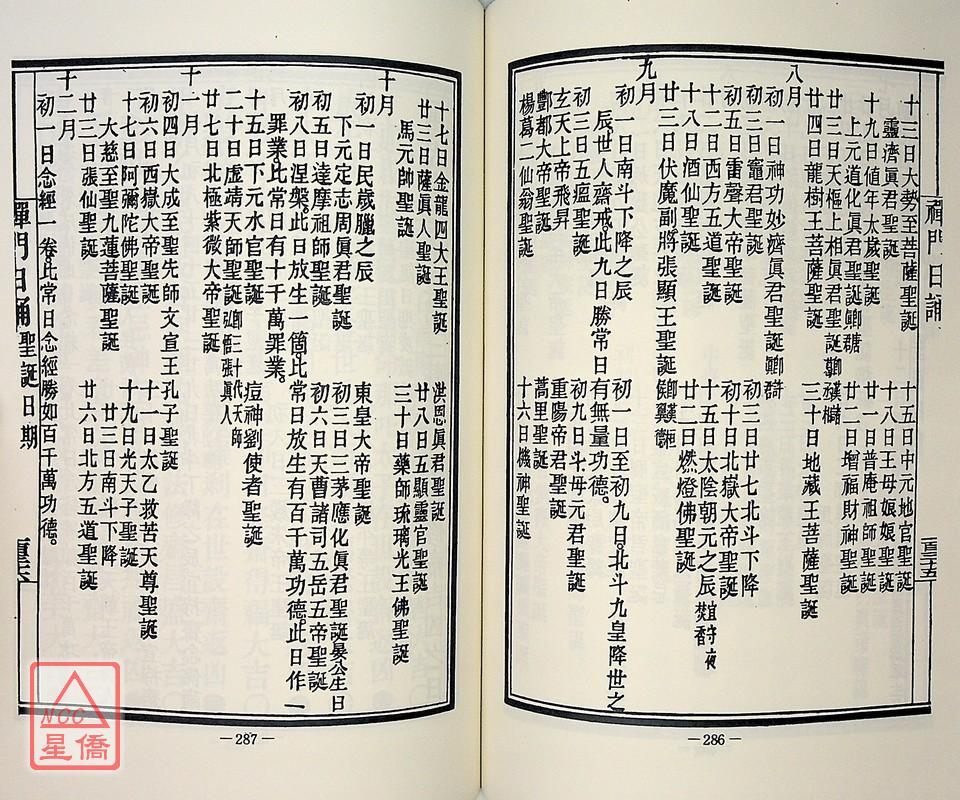 禪門日誦
十三日大勢至菩薩聖誕 十五日中元地官聖誕
靈濟眞君聖誕 十八日王母娘娘聖誕
十九日値年太歲聖誕 廿一日普庵祖師聖誕
上元道化眞君聖誕 廿二日增福財神聖誕
廿三日天樞上相眞君聖誕
廿四日龍樹王菩薩聖誕 三十日地藏王菩薩聖誕
八月
初一日神功妙濟眞君聖誕
初三日竈君聖誕 初三日廿七北斗下降
初五日雷聲大帝聖誕 初十日北嶽大帝聖誕
十二日西方五道聖誕 十五日太陰朝元之辰
十八日酒仙聖誕 廿二日燃燈佛聖誕
廿三日伏魔副將張顯王聖誕
九月
初一日南斗下降之辰 初一日至初九日北斗九皇降世之
辰世人齋戒此九日勝常日有無量功德。
初三日五瘟聖誕 初九日斗母元君聖誕
玄天上帝飛昇 重陽帝君聖誕
酆都大帝聖誕 蒿里聖誕
楊葛二仙翁聖誕 十六日機神聖誕
一百三十五
—286—
十七日金龍四大王聖誕 洪恩眞君聖誕
廿三日薩眞人聖誕 廿八日五顯靈官聖誕
馬元帥聖誕 三十日藥師琉璃光王佛聖誕
十月
初一日民歲臘之辰 東皇大帝聖誕
下元定志周眞君聖誕 初三日三茅應化眞君聖誕
初五日達摩祖師聖誕 初六日天曹諸司五岳五帝聖誕
初八日涅槃此日放生一箇比常日放生有百千萬功德。此日作一
罪業比常日有十千萬罪業。
十五日下元水官聖誕 痘神劉使者聖誕
二十日虛靖天師聖誕
廿七日北極紫微大帝聖誕
十一月
初四日大成至聖先師文宣王孔子聖誕
初六日西嶽大帝聖誕 十一日太乙救苦天尊聖誕
十七日阿彌陀佛聖誕 十九日光天子聖誕
大慈至聖九蓮菩薩聖誕 廿三日南斗下降
廿三日張仙聖誕 廿六日北方五道聖誕
十二月
初一日念經一卷比常日念經勝如百千萬功德。
禪門日誦
聖誕日期
—287—
NCC
星僑